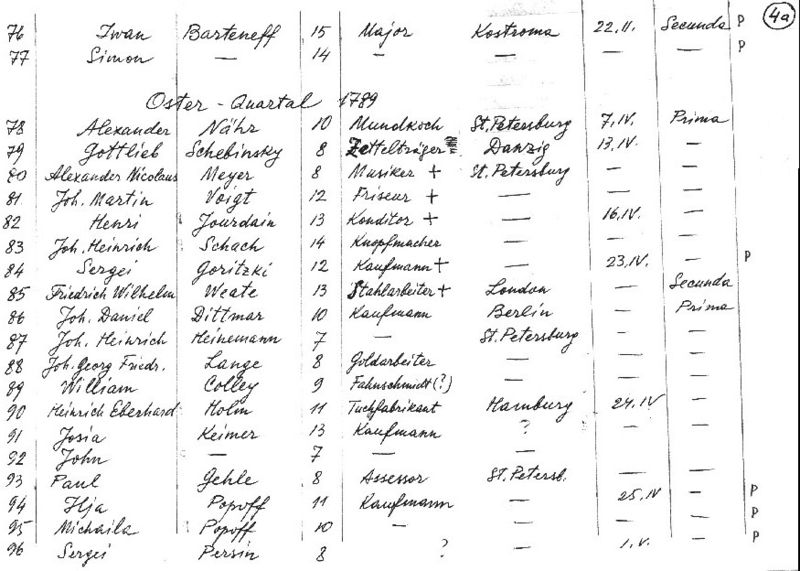 4a
76 Iwan Barteneff 15 Major Kostroma 22.II. Secunda P
77 Simon — 14 — — — — P
Oster-Quartal 1789
78 Alexander Nähr 10 Mundkoch St. Petersburg 7.IV. Prima
79 Gottlieb Schebinsky 8 Zettelträger Danzig 13.IV. —
80 Alexander Nicolaus Meyer 8 Musiker + St. Petersburg — —
81 Joh. Martin Voigt 12 Friseur + — — —
82 Henri Jourdain 13 Konditor + — 16.IV. —
83 Joh. Heinrich Schach 14 Knopfmacher — — —
84 Sergei Goritzki 12 Kaufmann + — 23.IV. — P
85 Friedrich Wilhelm Weate 13 Stahlarbeiter + London — Secunda
86 Joh. Daniel Dittmar 10 Kaufmann Berlin — Prima
87 Joh. Heinrich Heinemann 7 — St. Petersburg — —
88 Joh. Georg Friedr. Lange 8 Goldarbeiter — — —
89 William Colley 9 Fahnschmidt (?) — — —
90 Heinrich Eberhard Holm 11 Tuchfabrikant Hamburg 24.IV —
91 Josia Keimer 13 Kaufmann ? — —
92 John — 7 — — — —
93 Paul Gehle 8 Assessor St. Petersb. — —
94 Ilja Popoff 11 Kaufmann — 25.IV — P
95 Michaila Popoff 10 — — — — P
96 Sergei Persin 8 ? — 1.V. — P